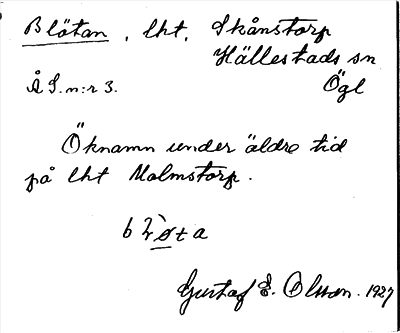 Blötan, lht, Skånstorp
Hällestads sn
Å S. n:r 3. Ögl
Öknamn under äldre tid
på lht Malmstorp.
Gustaf E. Olsson. 1927